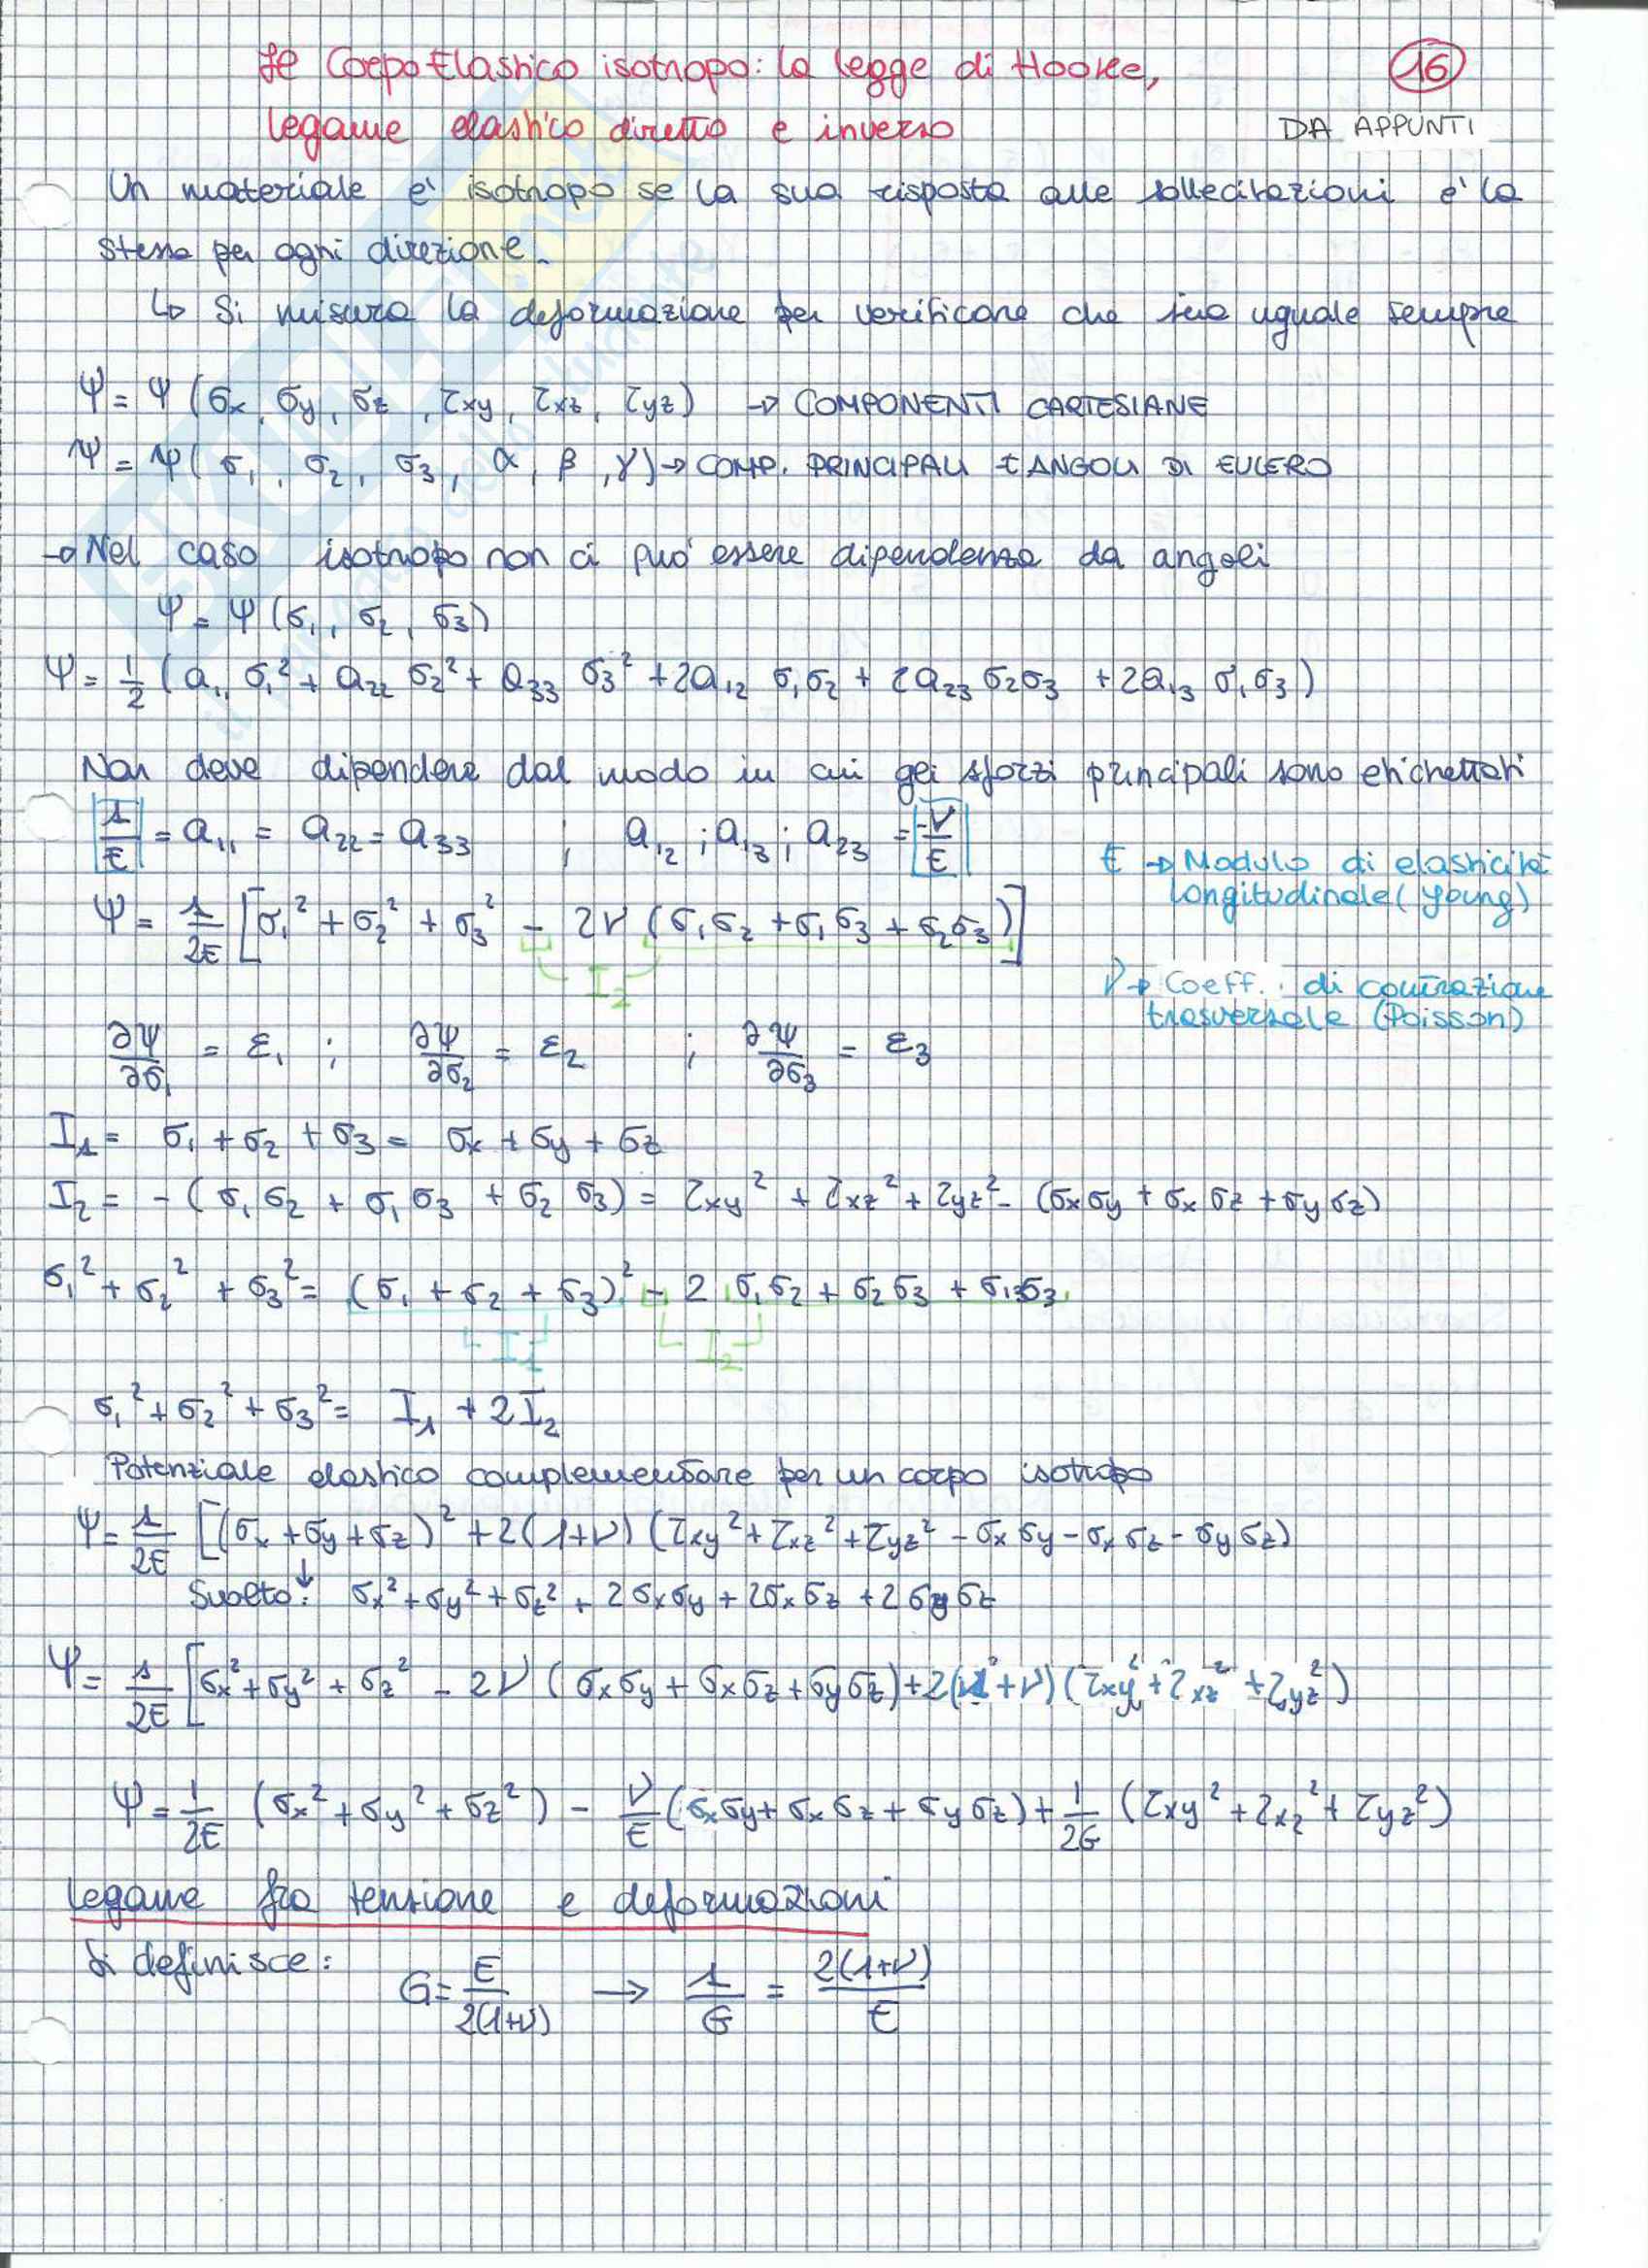 Il Corpo Elastico isotropo: la legge di Hooke,
16
legame elastico diretto e inverso
DA APPUNTI
Un materiale e' isotropo se la sua risposta alle sollecitazioni e' la
stessa per ogni direzione.
↳ Si misura la deformazione per verificare che sia uguale sempre
Ψ = Ψ (σx, σy, σz, τxy, τxz, τyz) → COMPONENTI CARTESIANE
Ψ = Ψ (σ1, σ2, σ3, α, β, γ) → COMP. PRINCIPALI E ANGOLI DI EULERO
→ Nel caso isotropo non ci può essere dipendenza da angoli
Ψ = Ψ (σ1, σ2, σ3)
Ψ = 1/2 (a11 σ1² + a22 σ2² + a33 σ3² + 2a12 σ1σ2 + 2a23 σ2σ3 + 2a13 σ1σ3)
Non deve dipendere dal modo in cui gli sforzi principali sono etichettati
1/E = a11 = a22 = a33 ; a12 ; a13 ; a23 = -ν/E
E → Modulo di elasticità
longitudinale (Young)
Ψ = 1/2E [σ1² + σ2² + σ3² - 2ν (σ1σ2 + σ1σ3 + σ2σ3)]
I2
ν → Coeff. di contrazione
trasversale (Poisson)
∂Ψ/∂σ1 = ε1 ; ∂Ψ/∂σ2 = ε2 ; ∂Ψ/∂σ3 = ε3
I1 = σ1 + σ2 + σ3 = σx + σy + σz
I2 = - (σ1σ2 + σ1σ3 + σ2σ3) = τxy² + τxz² + τyz² - (σxσy + σxσz + σyσz)
σ1² + σ2² + σ3² = (σ1 + σ2 + σ3)² - 2 σ1σ2 + σ2σ3 + σ1σ3
I1 I2
σ1² + σ2² + σ3² = I1 + 2I2
Potenziale elastico complementare per un corpo isotropo
Ψ = 1/2E [(σx + σy + σz)² + 2(1+ν) (τxy² + τxz² + τyz² - σxσy - σxσz - σyσz)
Svolto: ↓ σx² + σy² + σz² + 2σxσy + 2σxσz + 2σyσz
Ψ = 1/2E [σx² + σy² + σz² - 2ν (σxσy + σxσz + σyσz) + 2(1+ν) (τxy² + τxz² + τyz²)
Ψ = 1/2E (σx² + σy² + σz²) - ν/E (σxσy + σxσz + σyσz) + 1/2G (τxy² + τxz² + τyz²)
legame fra tensione e deformazioni
Si definisce: G = E/2(1+ν) → 1/G = 2(1+ν)/E